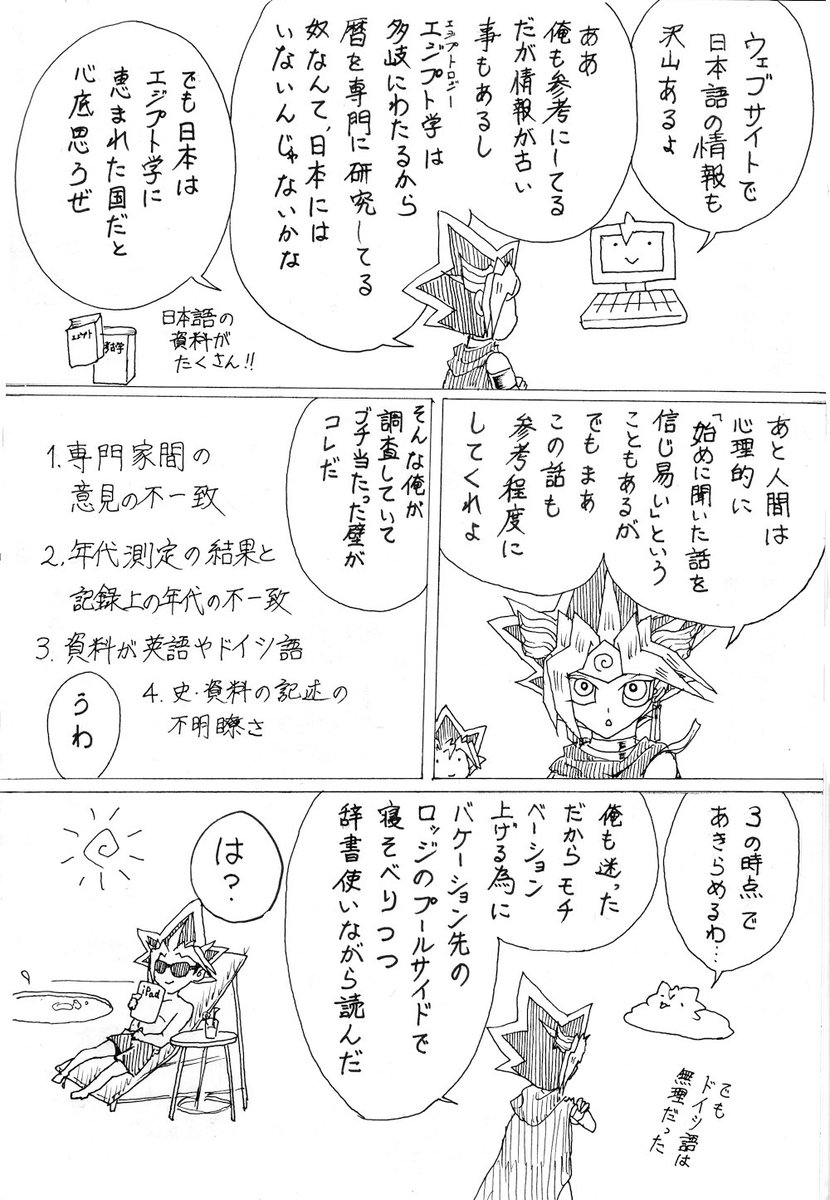 ウェブサイトで
日本語の情報も
沢山あるよ
ああ
俺も参考にしてる
だが情報が古い
事もあるし
エジプトロジー
エジプト学は
多岐にわたるから
暦を専門に研究してる
奴なんて、日本には
いないんじゃないかな
でも日本は
エジプト学に
恵まれた国だと
心底思うぜ
エジプト
考古学
日本語の
資料が
たくさん!!
あと人間は
心理的に
「始めに聞いた話を
信じ易い」という
こともあるが
でもまあ
この話も
参考程度に
してくれよ
そんな俺が
調査していて
ブチ当たった壁が
コレだ
1.専門家間の
意見の不一致
2.年代測定の結果と
記録上の年代の不一致
3.資料が英語やドイツ語
4.史・資料の記述の
不明瞭さ
うわ
3の時点で
あきらめるわ…
俺も迷った
だからモチ
ベーション
上げる為に
バケーション先の
ロッジのプールサイドで
寝そべりつつ
辞書使いながら読んだ
は?
iPad
でも
ドイツ語は
無理だった